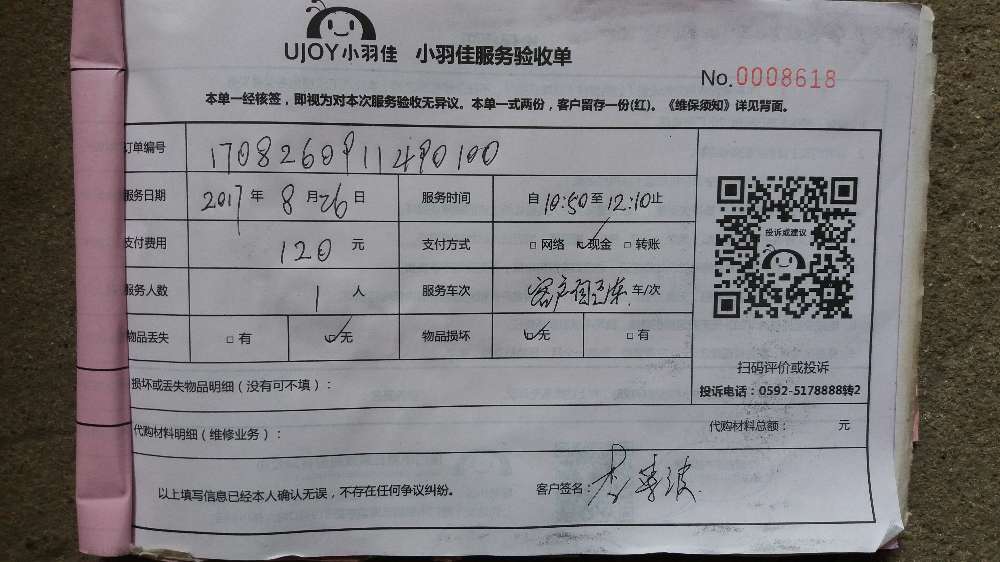 UJOY小羽佳 小羽佳服务验收单
No.0008618
本单一经核签，即视为对本次服务验收无异议。本单一式两份，客户留存一份(红)。《维保须知》详见背面。
订单编号 1708260911490100
服务日期 2017年8月26日 服务时间 自10:50至12:10止
支付费用 120元 支付方式 □网络 ☑现金 □转账
服务人数 1人 服务车次 客户 车/次
物品丢失 □有 ☑无 物品损坏 ☑无 □有
投诉或建议
扫码评价或投诉
投诉电话：0592-5178888转2
损坏或丢失物品明细（没有可不填）：
代购材料明细（维修业务）： 代购材料总额： 元
以上填写信息已经本人确认无误，不存在任何争议纠纷。 客户签名：李 波